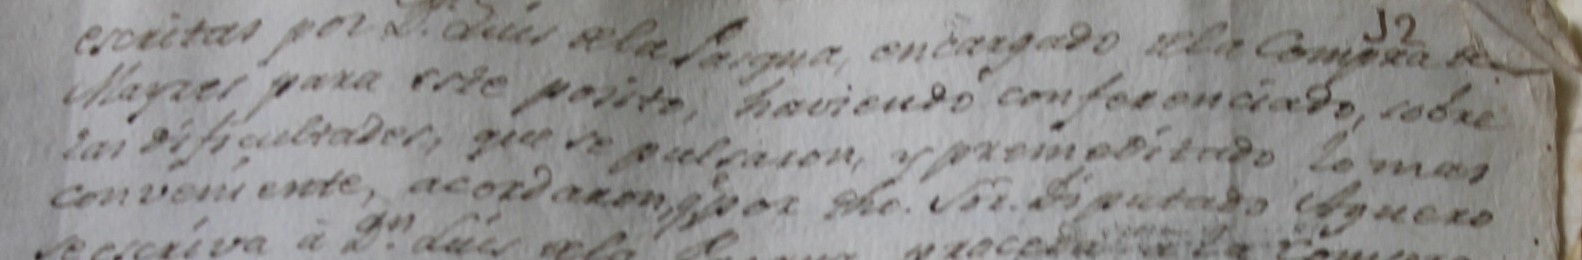 12
escritas por Dn. Luis de la Pasqua, encargado de la Compra de
Mayzes para este posito, haviendo conferenciado, sobre
las dificultades, que se pulsaron, y premeditado lo mas
conveniente, acordaron, q.e por dho. Sor. Diputado Aguero
se escriva à Dn. Luis de la proceda a la Compra